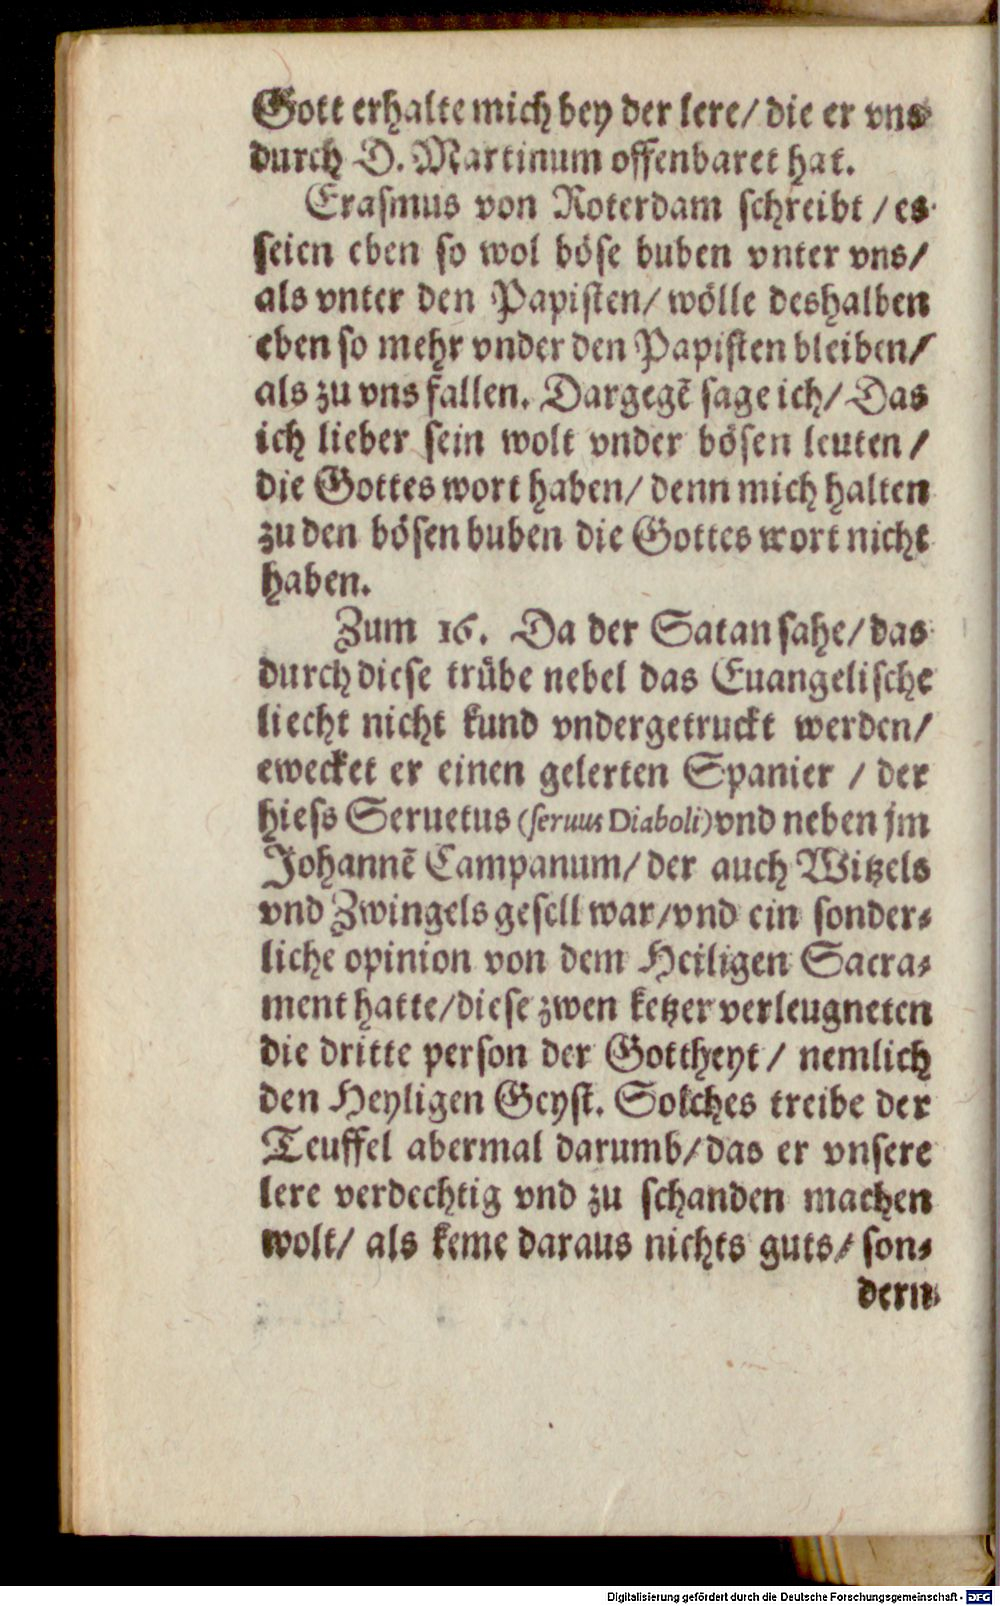 Gott erhalte mich bey der lere/ die er vns
durch D. Martinum offenbaret hat.
Erasmus von Roterdam schreibt / es
seien eben so wol böse buben vnter vns/
als vnter den Papisten/ wölle deshalben
eben so mehr vnder den Papisten bleiben/
als zu vns fallen. Dargegē sage ich/ Das
ich lieber sein wolt vnder bösen leuten /
die Gottes wort haben/ denn mich halten
zu den bösen buben die Gottes wort nicht
haben.
Zum 16. Da der Satan sahe/ das
durch diese trübe nebel das Euangelische
liecht nicht kund vndergetruckt werden/
ewecket er einen gelerten Spanier / der
hiess Seruetus (seruus Diaboli) vnd neben jm
Johannē Campanum/ der auch Witzels
vnd Zwingels gesell war/ vnd ein sonder-
liche opinion von dem Heiligen Sacra-
ment hatte/ diese zwen ketzer verleugneten
die dritte person der Gottheyt / nemlich
den Heyligen Geyst. Solches treibe der
Teuffel abermal darumb/ das er vnsere
lere verdechtig vnd zu schanden machen
wolt/ als keme daraus nichts guts/ son-
dern
Digitalisierung gefördert durch die Deutsche Forschungsgemeinschaft - DFG